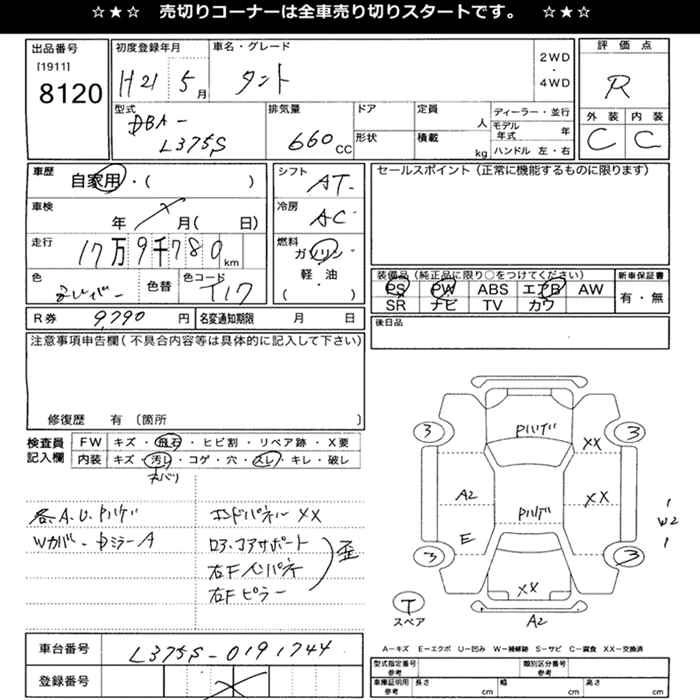 ☆★☆ 売切りコーナーは全車売り切りスタートです。 ☆★☆
出品番号
[1911]
8120
初度登録年月
H21 5月
車名・グレード
タント
2WD
・
4WD
評価点
R
外装 内装
C C
型式
DBA-
L375S
排気量
660 CC
ドア
形状
定員
人
積載
kg
ディーラー・並行
モデル年式 年
ハンドル 左・右
車歴
自家用・( )
車検
年 月( 日)
走行
17万9千780 km
色
シルバー
色替
色コード
T17
シフト
AT
冷房
AC
燃料
ガソリン
軽・油
( )
セールスポイント(正常に機能するものに限ります)
装備品(純正品に限り○をつけてください)
PS PW ABS エアB AW
SR ナビ TV カワ
新車保証書
有・無
R券 9,790 円
名変通知期限 月 日
後日品
注意事項申告欄(不具合内容等は具体的に記入して下さい)
修復歴 有 〔箇所 〕
検査員
記入欄
FW キズ・飛石・ヒビ割・リペア跡・X要
内装 キズ・汚れ・コゲ・穴・スレ・キレ・破レ
ネバリ
各A.U.Pハゲ
Wカバー・Dミラー A
エンドパネル XX
ロア.コアサポート
右Fインパネ
右Fピラー
歪
Pハゲ
3
3
XX
A2
XX
Pハゲ
E
W2
3
3
XX
T
スペア
A2
車台番号
L375S-0191744
登録番号
A-キズ E-エクボ U-凹み W-補修跡 S-サビ C-腐食 XX-交換済
型式指定番号
参考
類別区分番号
参考
車庫証明用
参考
長さ cm
幅 cm
高さ cm